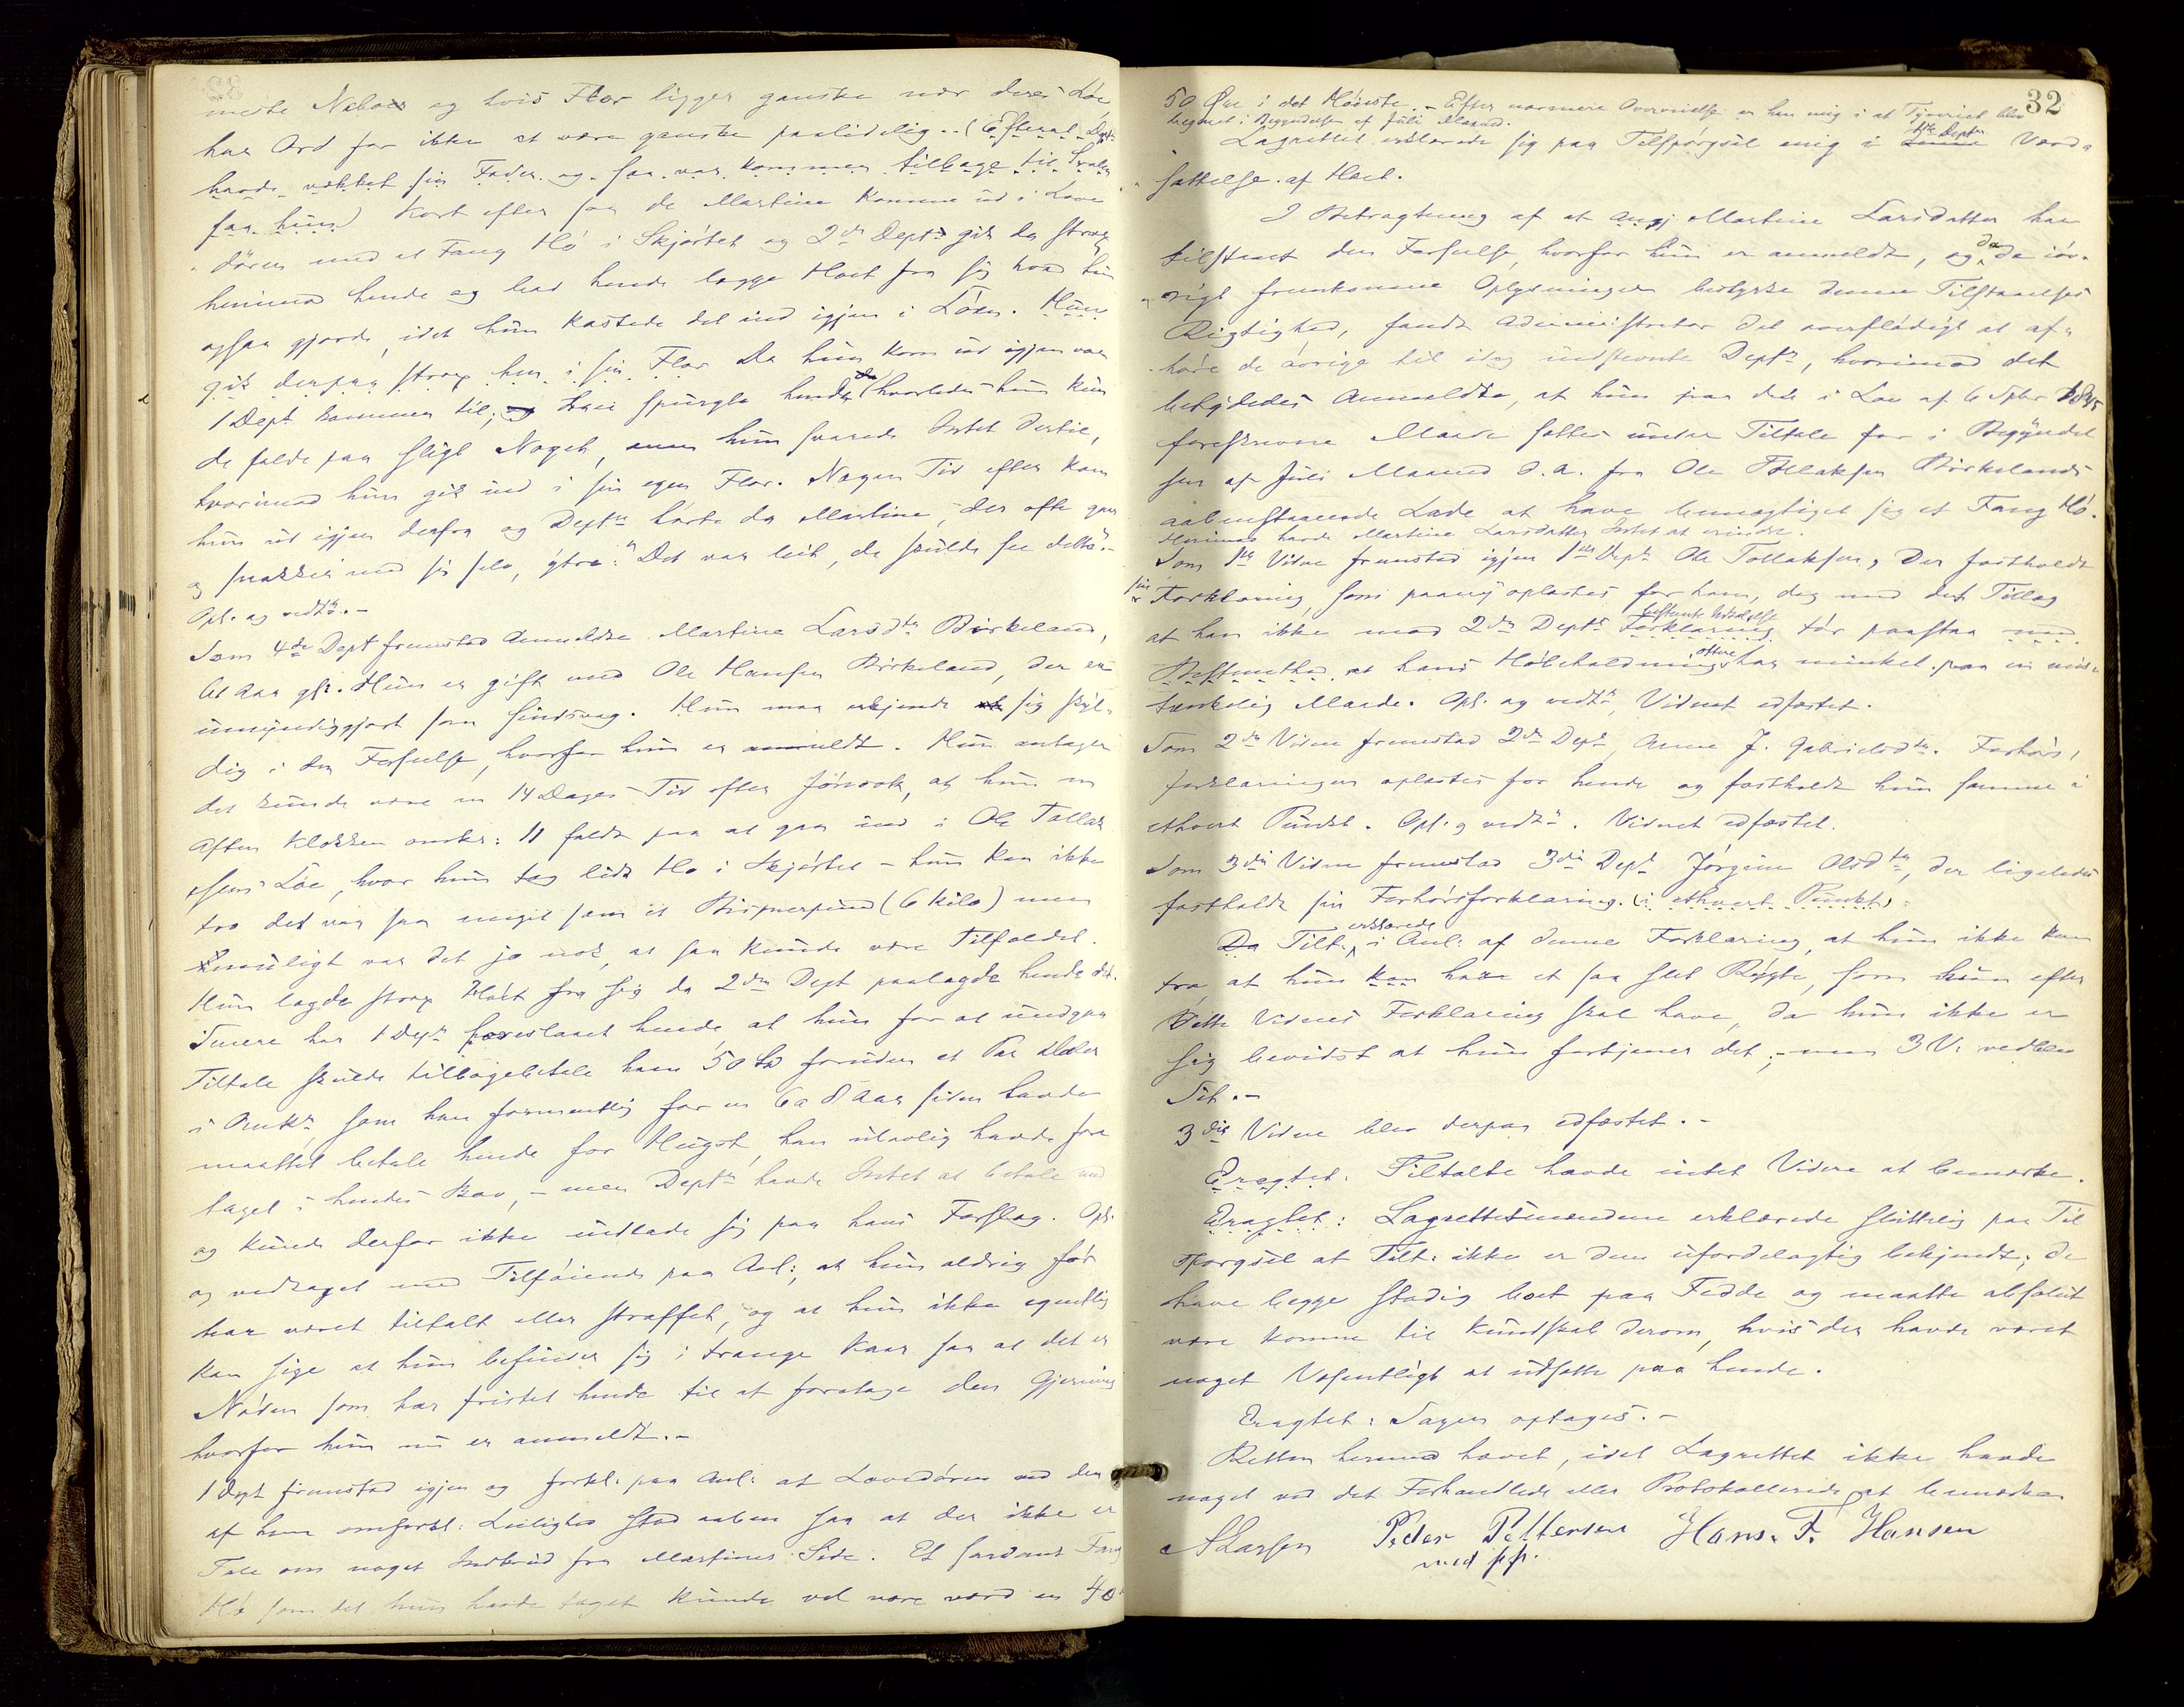 meste Naboer og hvis Flor ligger ganske nær deres Løe
har Ord for ikke at være ganske paalidelig. - (Efterat Dept.
havde vækket sin Fader og saa var kommen tilbage til Svalen
saa hun) Kort efter saa de Martine komme ud i Love
døren med et Fang Hø i Skjørtet og 2den Dept gik da strax
henimod hende og bad hende lægge Høet fra sig hvad hun
ogsaa gjorde, idet hun kastede det ind igjen i Løen. Hun
gik derpaa strax hen i sin Flor. Da hun kom ud igjen var
1 Dept kommen til; han spurgte hende da hvorledes hun kun
de falde paa sligt Noget, men hun svarede Intet dertil,
hvorimod hun gik ind i sin egen Flor. Nogen Tid efter kom
hun ud igjen derfra og Deptn hørte da Martine, der ofte gaar
og snakker med sig selv, ytre: "Det var leit, de skulde see dette". -
Opl. og vedt. -
Som 4de Dept fremstod Anmeldte Martine Larsdtr Birkeland,
61 Aar gl. Hun er gift med Ole Hansen Birkeland, der er
umyndiggjort som sindsvag. Hun maa erkjende sig skyl-
dig i den Forseelse, hvorfor hun er anmeldt. Hun antager
det kunde være en 14 Dages Tid efter Jonsok, at hun en
Aften Klokken omkr: 11 faldt paa at gaa ind i Ole Tollak
sens Løe, hvor hun tog lidt Hø i Skjørtet - hun kan ikke
tro det var saa meget som et Bismerpund (6 kilo) men
muligt var det jo nok, at saa kunde være Tilfældet.
Hun lagde strax Høet fra sig da 2den Dept paalagde hende det.
Senere har 1 Dept foreslaaet hende, at hun for at undgaa
Tiltale skulde tilbagebetale ham 50 Kr foruden et Par Daler
i Omk, som han formentlig for en 6 a 8 Aar siden havde
maattet betale hende for Hugst, han ulovlig havde fore
taget i hendes Skov, - men Deptn havde Intet at betale med
og kunde derfor ikke indlade sig paa hans Forslag. Opl.
og vedtaget med Tilføiende paa Anl:, at hun aldrig før
har været tiltalt eller straffet, og at hun ikke egentlig
kan sige at hun befinder sig i trange Kaar saa at det er
Nøden som har fristet hende til at foretage den Gjerning
hvorfor hun nu er anmeldt. -
1 Dept fremstod igjen og forkl: paa Anl: at Lovedøren ved den
af ham omforkl: Leilighed stod aaben saa at der ikke er
Tale om noget Indbrud fra Martines Side. Et saadant Fang
Hø som det hun havde taget kunde vel være værd en 40
32
50 Øre i det Høieste. - Efter nærmere Overveielse er han enig i at Tyveriet blev
begaaet i Begyndelsen af Juli Maaned.
Lagrettet erklærede sig paa Tilspørgsel enig i 1ste Deptn Værd-
sættelse af Høet.
I Betragtning af at Ang: Martine Larsdatter har
tilstaaet den Forseelse, hvorfor hun er anmeldt, og da de iøv-
rigt fremkomne Oplysninger bestyrke denne Tilstaaelses
Rigtighed, fandt Administrator det overflødigt at af-
høre de øvrige til idag indstevnte Deptr, hvorimod det
betydedes Anmeldte, at hun paa den i Lov af 6 Sptbr 1845
foreskrevne Maade sættes under Tiltale for i Begyndel
sen af Juli Maaned d.a. fra Ole Tollaksen Birkelands
aabenstaaende Lade at have bemægtiget sig et Fang Hø.
Herimod havde Martine Larsdatter Intet at erindre.
Som 1ste Vidne fremstod igjen 1ste Dept Ole Tollaksen, der fastholdt
sin Forklaring, som paany oplæstes for ham, dog med det Tillæg
at han ikke med 2den Depts Forklaring bestemte Udsigelse tør paastaa med
Bestemthed at hans Høbeholdning oftere har minket paa en mis-
tænkelig Maade. Opl. og vedt. Vidnet edfæstet.
Som 2det Vidne fremstod 2den Dept Anne J. Gabrielsdtr. Forhørs-
forklaringen oplæstes for hende og fastholdt hun samme i
ethvert Punkt. Opl. og vedt. Vidnet edfæstet.
Som 3die Vidne fremstod 3die Dept Jørgine Olsdtr, der ligeledes
fastholdt sin Forhørsforklaring. (i ethvert Punkt).
Da Tilt: erklærede i Anl: af denne Forklaring, at hun ikke kan
tro, at hun kan have et saa slet Rygte, som hun efter
dette Vidnes Forklaring skal have, da hun ikke er
sig bevidst at hun fortjener det; - men 3 V. vedblev
Sit. -
3die Vidne blev derpaa edfæstet. -
Eragtet: Tiltalte havde intet Videre at bemærke.
Eragtet: Lagrettesmændene erklærede sluttelig paa Til
spørgsel at Tilt: ikke er dem ufordelagtig bekjendt; de
have begge stadig boet paa Fedde og maatte absolut
være komne til Kundskab derom, hvis der havde været
noget Væsentligt at udsætte paa hende.
Eragtet: Sagen optages. -
Retten hermed hævet, idet Lagrettet ikke havde
noget ved det Forhandlede eller Protokollerede at bemærke
ALarsen Peder Pettersen Hans. F. Hansen
med p.p.